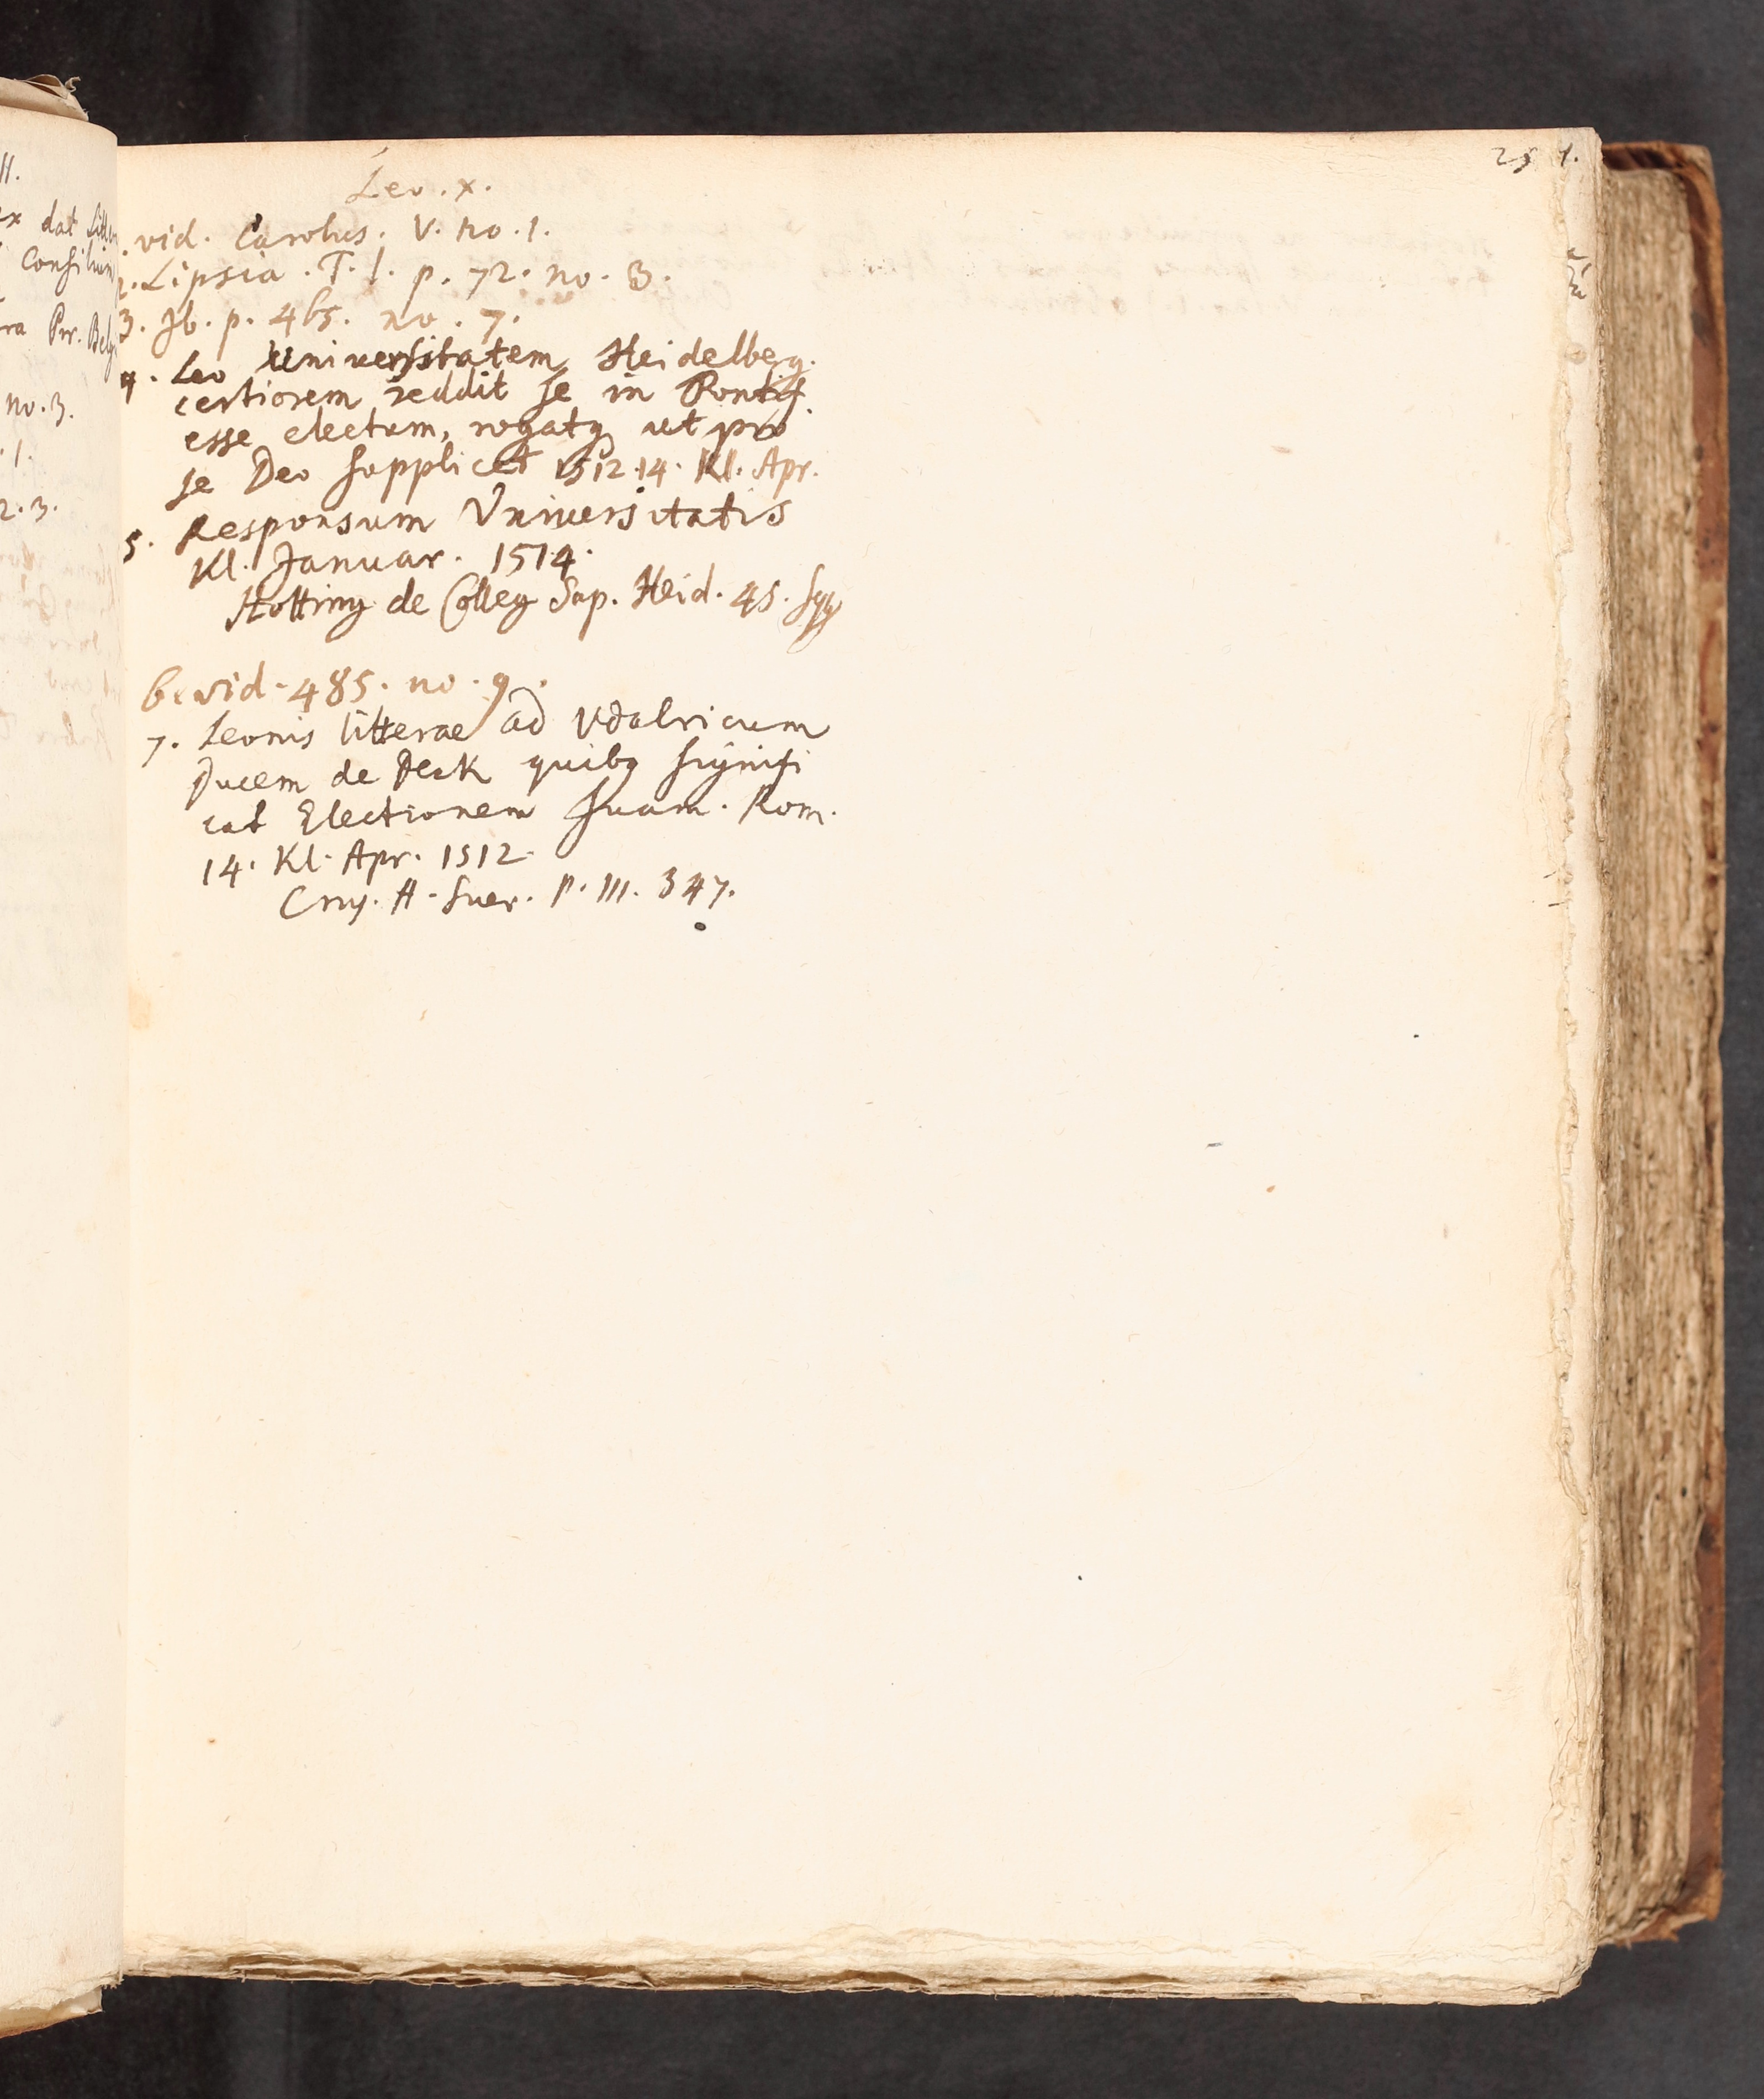 251.
Leo. X.
1. vid. Carolus. V. no. 1.
2. Lipsia. T. 1. p. 72. no. 3.
3. Ib. p. 465. no. 7.
4. Leo Universitatem Heidelberg.
certiorem reddit se in Pontif.
esse electum, rogatq ut pro
se Deo supplicet 1512. 14. Kl. Apr.
5. Responsum Universitatis
Kl. Januar. 1514.
Hotting de Colleg Sap. Heid. 45. sqq
6. vid. 485. no. 9.
7. Leonis litterae ad Vdalricum
Ducem de Deck quibq signifi
cat Electionem suam. Rom.
14. Kl. Apr. 1512.
Crus. A. Suev. P. III. 347.
dat
Consilium
no. 3.
1.
2. 3.